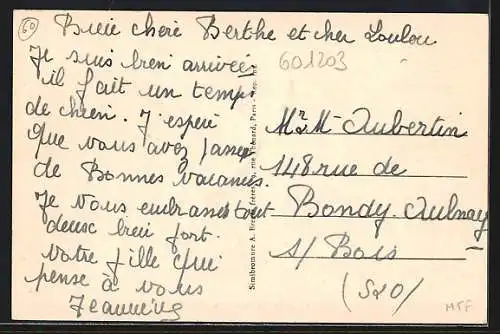 60
Bien chère Berthe et cher Loulou
Je suis bien arrivée
il fait un temps
de chien. J'espère
que vous avez passé
de Bonnes vacances.
Je vous embrasse tout
deux bien fort.
votre fille qui
pense à vous
Jeannine
601203
Mr Me Aubertin
148 rue de
Bondy. Aulnay
s/ Bois
(S&O)
MTF
Simibromure A. Breger frères, rue Thénard, Paris